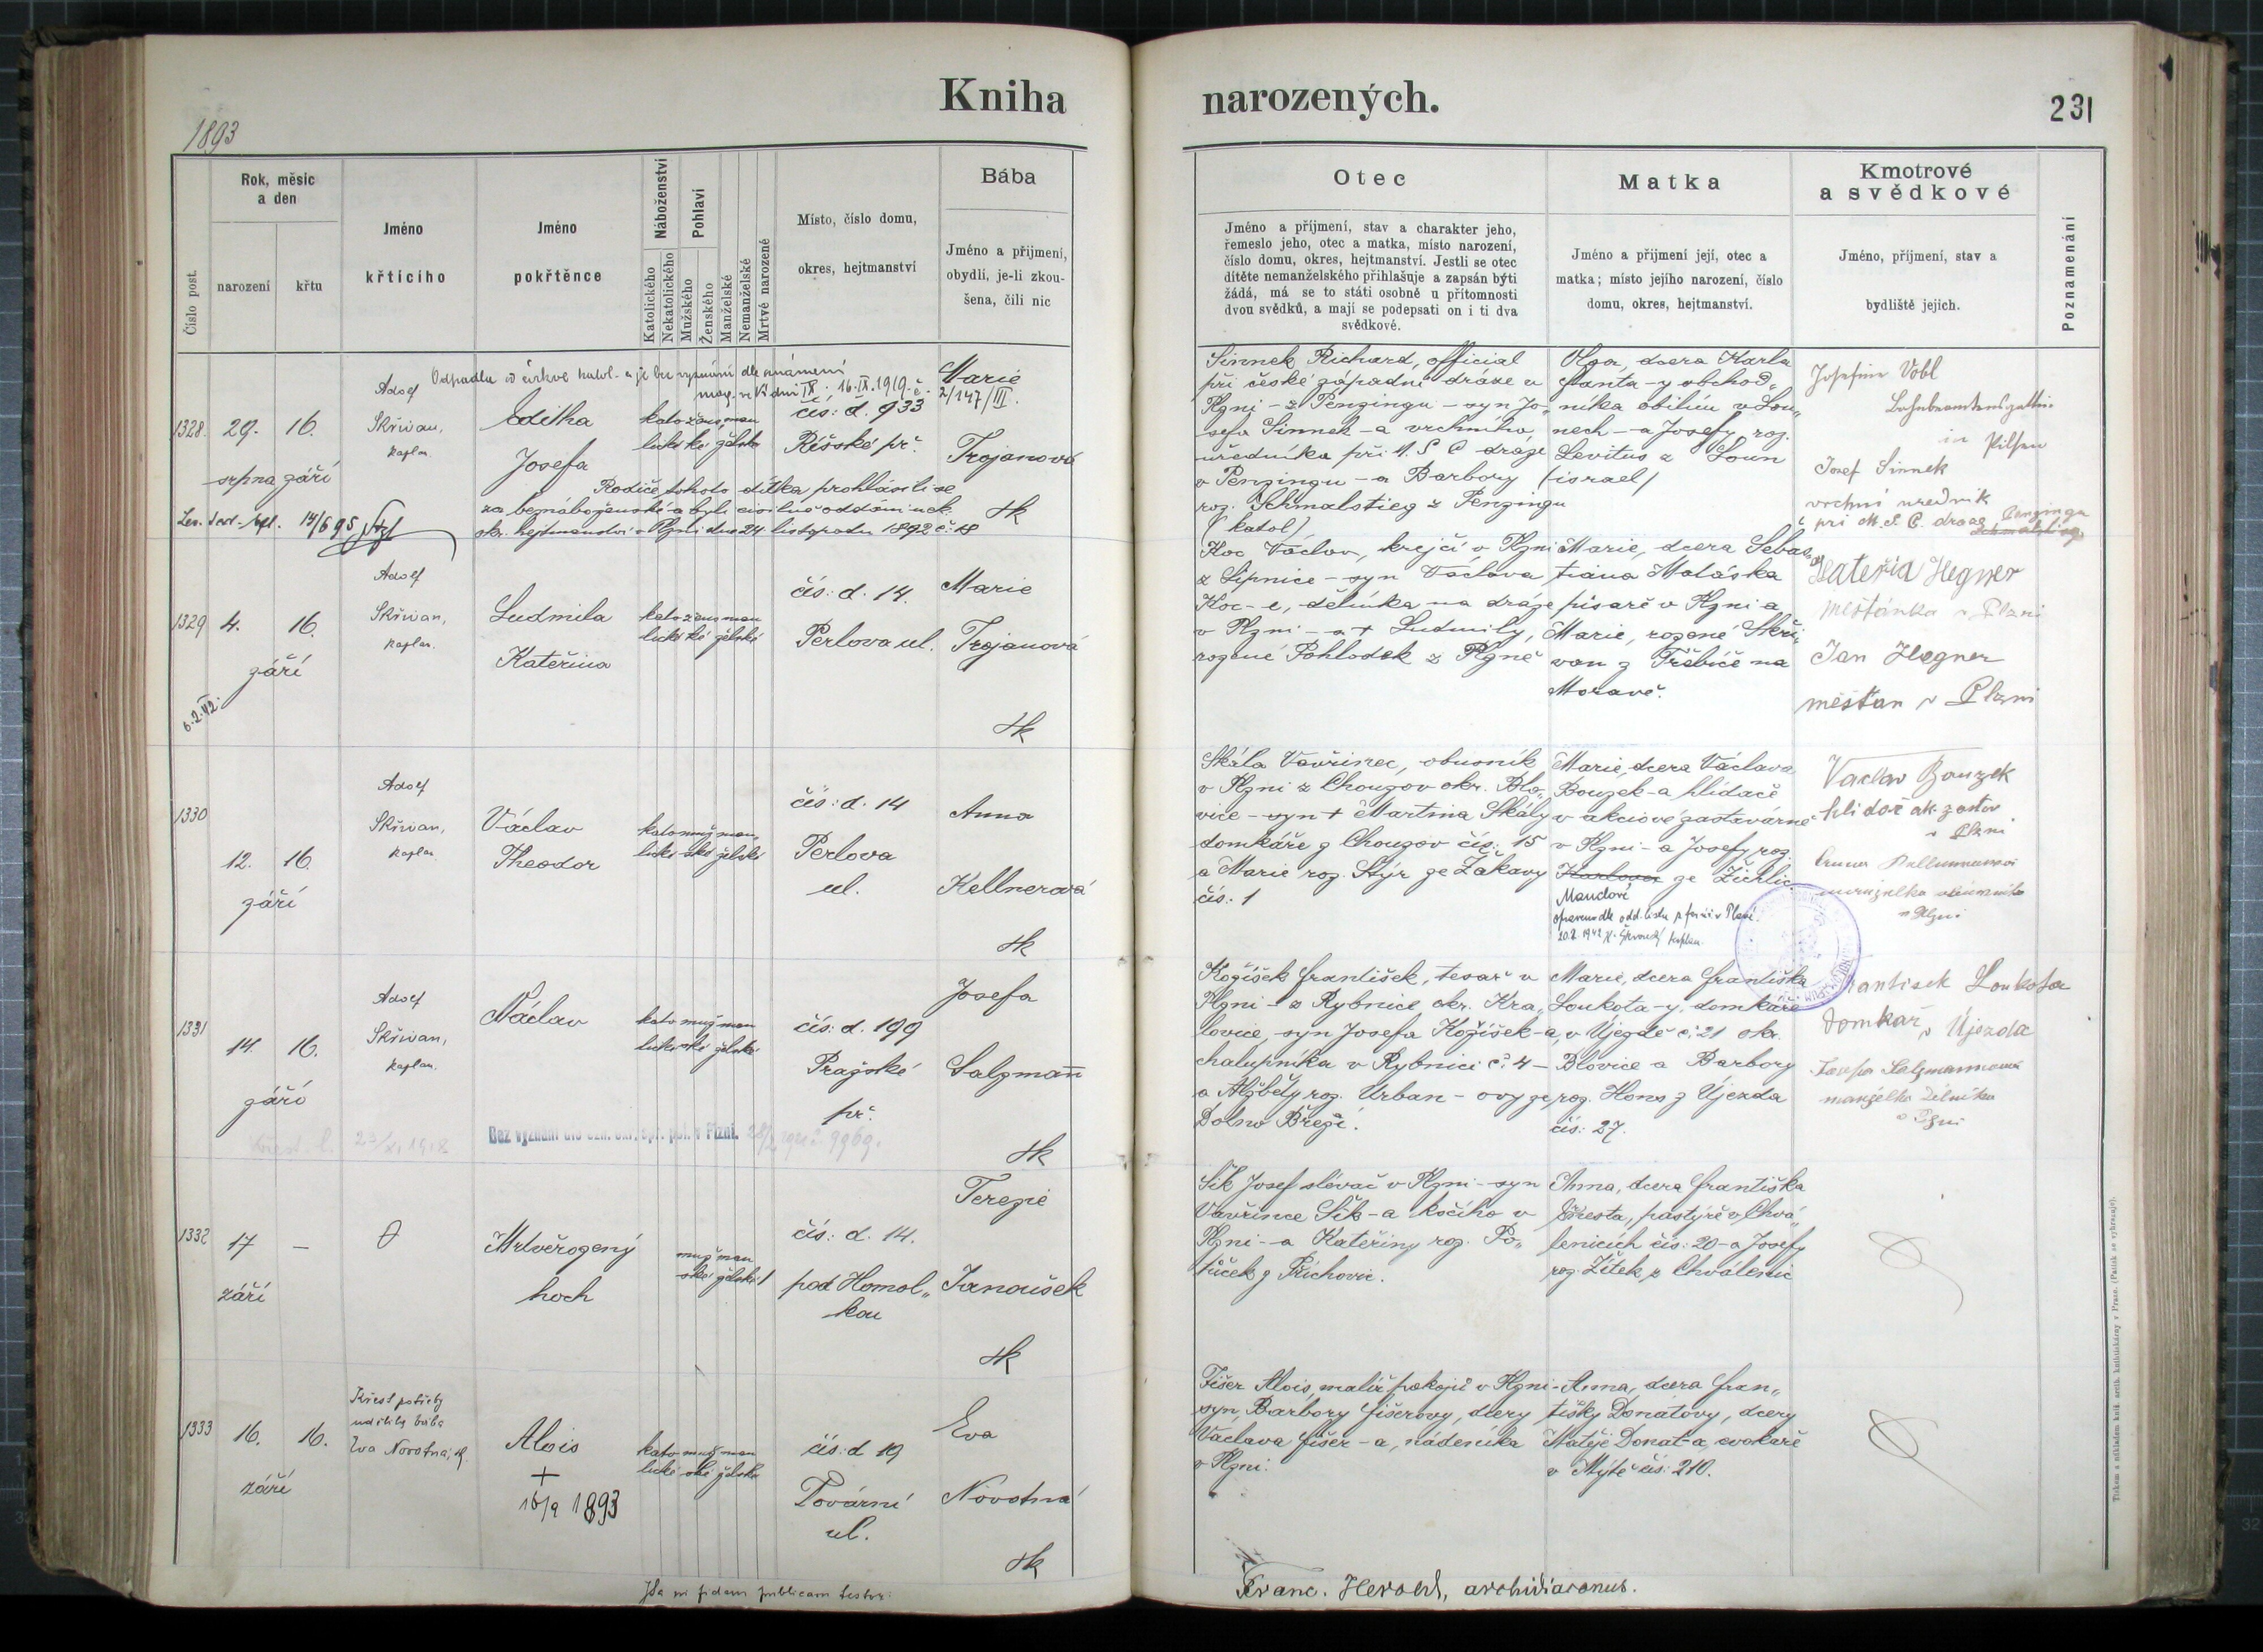 Kniha
narozených.
231
1893
Číslo post.
Rok, měsíc
a den
narození
křtu
Jméno
křtícího
Jméno
pokřtěnce
Náboženství
Katolického
Nekatolického
Pohlaví
Mužského
Ženského
Manželské
Nemanželské
Mrtvě narozené
Místo, číslo domu,
okres, hejtmanství
Bába
Jméno a příjmení,
obydlí, je-li zkou-
šena, čili nic
Otec
Jméno a příjmení, stav a charakter jeho,
řemeslo jeho, otec a matka, místo narození,
číslo domu, okres, hejtmanství. Jestli se otec
dítěte nemanželského přihlašuje a zapsán býti
žádá, má se to státi osobně u přítomnosti
dvou svědků, a mají se podepsati on i ti dva
svědkové.
Matka
Jméno a příjmení její, otec a
matka; místo jejího narození, číslo
domu, okres, hejtmanství.
Kmotrové
a svědkové
Jméno, příjmení, stav a
bydliště jejich.
Poznamenání
Odpadla od církve katol. a je bez vyznání dle oznámení
16.IX.1919 č. 2/147/III.
1328
29. 16.
srpna září
Adolf
Skřivan,
kaplan
Editha
Josefa
kato žens man
lické ké želské
čís: d. 933
Říšské př.
Marie
Trojanová
zk
Rodiče tohoto dítka prohlásili se
za beznáboženské a byli civilně oddáni u c.k.
okr. hejtmanství v Plzni dne 24. listopadu 1892 č. 18
14/6 95
Sinnek Richard, official
při české západní dráze v
Plzni - z Penzingu - syn Jo„
sefa Sinnek-a vrchního
úředníka při M. S. C. dráze
v Penzingu - a Barbory
roz. Schmalstieg z Penzingu
(katol)
Olga, dcera Karla
Fanta-y obchod„
níka obilím v Lou„
nech - a Josefy roz.
Levitus z Loun
(israel)
Josefine Vobl
Bahnbeamtensgattin
in Pilsen
Josef Sinnek
vrchní úředník
při M. S. C. draze Penzingu
1329
4. 16.
září
6.2.42.
Adolf
Skřivan,
kaplan.
Ludmila
Kateřina
kato žens man
lické ké želské
čís: d. 14.
Perlova ul.
Marie
Trojanová
zk
Koc Václav, krejčí v Plzni
z Lipnice - syn Václava
Koc-e, dělníka na dráze
v Plzni - a + Ludmily,
rozené Pohlodek z Plzně
Marie, dcera Sebas„
tiana Maláska
písaře v Plzni a
Marie, rozené Skři„
van z Třebíče na
Moravě.
Kateřia Hegner
měšťánka v Plzni
Jan Hegner
měšťan v Plzni
1330
12. 16.
září
Adolf
Skřivan,
kaplan
Václav
Theodor
kato muž man
lické ské želské
čís: d. 14
Perlova
ul.
Anna
Kellnerová
zk
Skála Vavřinec, obuvník
v Plzni z Chouzov okr. Blo„
vice - syn + Martina Skály
domkáře z Chouzov čís: 15
a Marie roz. Stýr ze Žákavy
čís: 1
Marie, dcera Václava
Bouzek-a hlídače
v akciové zastavárně
v Plzni - a Josefy roz.
Karlova ze Žichlic
Mandové
opraveno dle odd. listu z farní v Plzni.
20.2.1942
kaplan.
Vaclav Bouzek
hlidač ak. zastav
v Plzni
manželka
v Plzni
1331
14. 16.
září
Adolf
Skřivan,
kaplan.
Václav
kato muž man
lické ské želské
čís: d. 199
Pražské
př.
Josefa
Salzmann
zk
Bez vyznání dle ozn. okr. spr. pol. v Plzni.
9969.
Kožíšek František, tesař v
Plzni - z Rybnice okr. Kra„
lovice, syn Josefa Kožíšek-a,
chalupníka v Rybnici č. 4 -
a Alžběty roz. Urban-ovy ze
Dolno Břeží.
Marie, dcera Františka
Loukota-y, domkáře
v Újezdě č. 21 okr.
Blovice a Barbory
roz. Hons z Újezda
čís: 27.
Frantisek Loukota
domkař v Újezda
Josefa Salzmannova
manželka dělníka
v Plzni
1332
17 —
září
Mrtvěrozený
hoch
muž man
ské želské 1
čís: d. 14.
pod Homol„
kou
Terezie
Janoušek
zk
Šik Josef slévač v Plzni - syn
Vavřince Šik-a kočího v
Plzni - a Kateřiny roz. Po„
tůček z Příchovic.
Anna, dcera Františka
Cresta, pastýře v Chvá„
lenicích čís: 20 - a Josefy
roz. Žítek z Chválenic
1333
16. 16.
září
Křest potřeby
udělila bába
Eva Novotná, zk
Alois
+
16/9 1893
kato muž man
lické ské želské
čís: d 19
Tovární
ul.
Eva
Novotná
zk
Fišer Alois, malíř pokojů v Plzni -
syn Barbory Fišerovy, dcery
Václava Fišer-a, nádeníka
v Plzni.
Anna, dcera Fran„
tišky Donátovy, dcery
Matěje Donát-a, cvokaře
v Mýtě čís: 210.
Ita in fidem publicam testor:
Franc. Herold, archidiaconus.